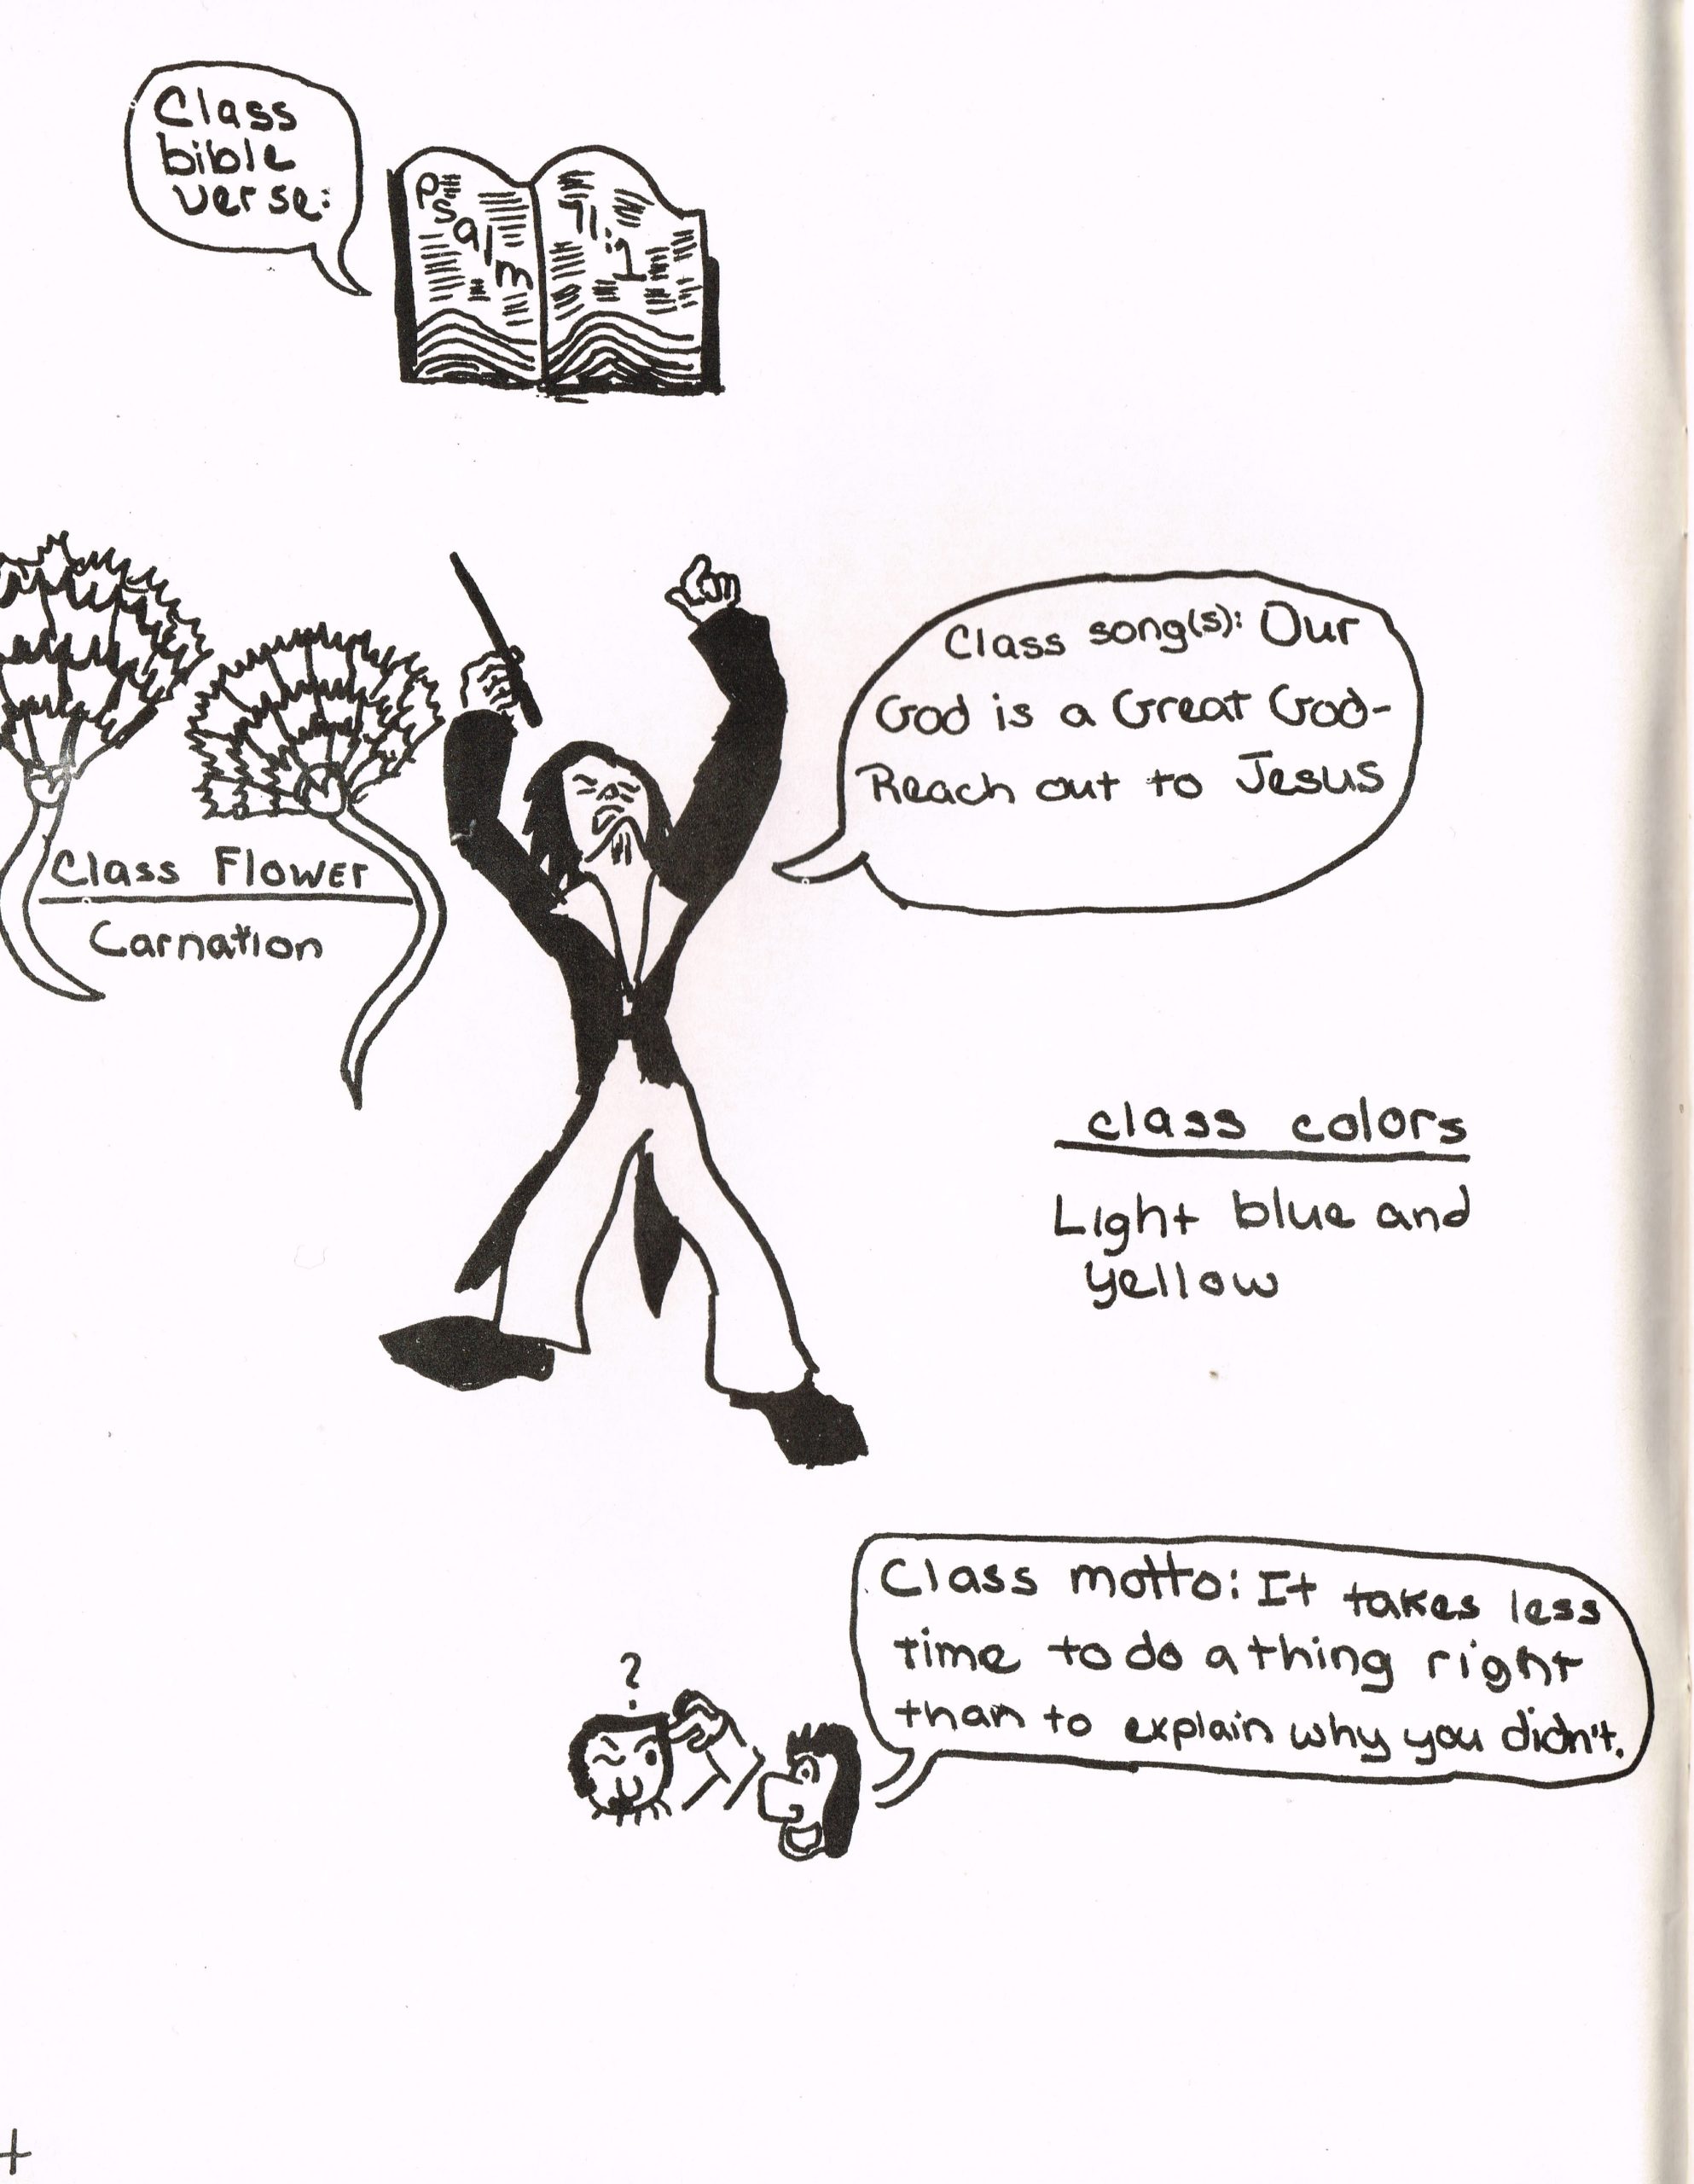 Class
bible
verse:
Psalm
71:1
Class song(s): Our
God is a Great God-
Reach out to Jesus
Class Flower
Carnation
class colors
Light blue and
yellow
?
Class motto: It takes less
time to do a thing right
than to explain why you didn't.